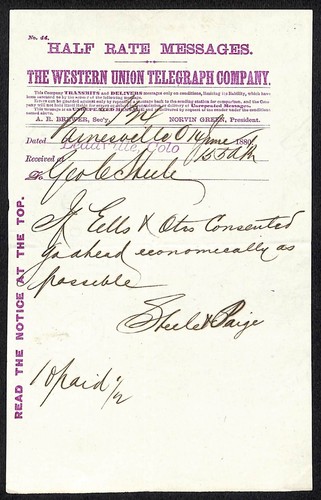 No. 44.
HALF RATE MESSAGES.
THE WESTERN UNION TELEGRAPH COMPANY.
This Company TRANSMITS and DELIVERS messages only on conditions, limiting its liability, which have been assented to by the sender of the following message.
Errors can be guarded against only by repeating a message back to the sending station for comparison, and the Company will not hold itself liable for errors or delays in transmission or delivery of Unrepeated Messages.
This message is an UNREPEATED MESSAGE and is delivered by request of the sender under the conditions named above.
A. R. BREWER, Sec'y. NORVIN GREEN, President.
Dated Painesville O 14 June 1880
Received at Leadville, Colo
To Geo C Steele
If Eells & Otis Consented
go ahead economically as
possible
Steele & Paige
10 paid
READ THE NOTICE AT THE TOP.